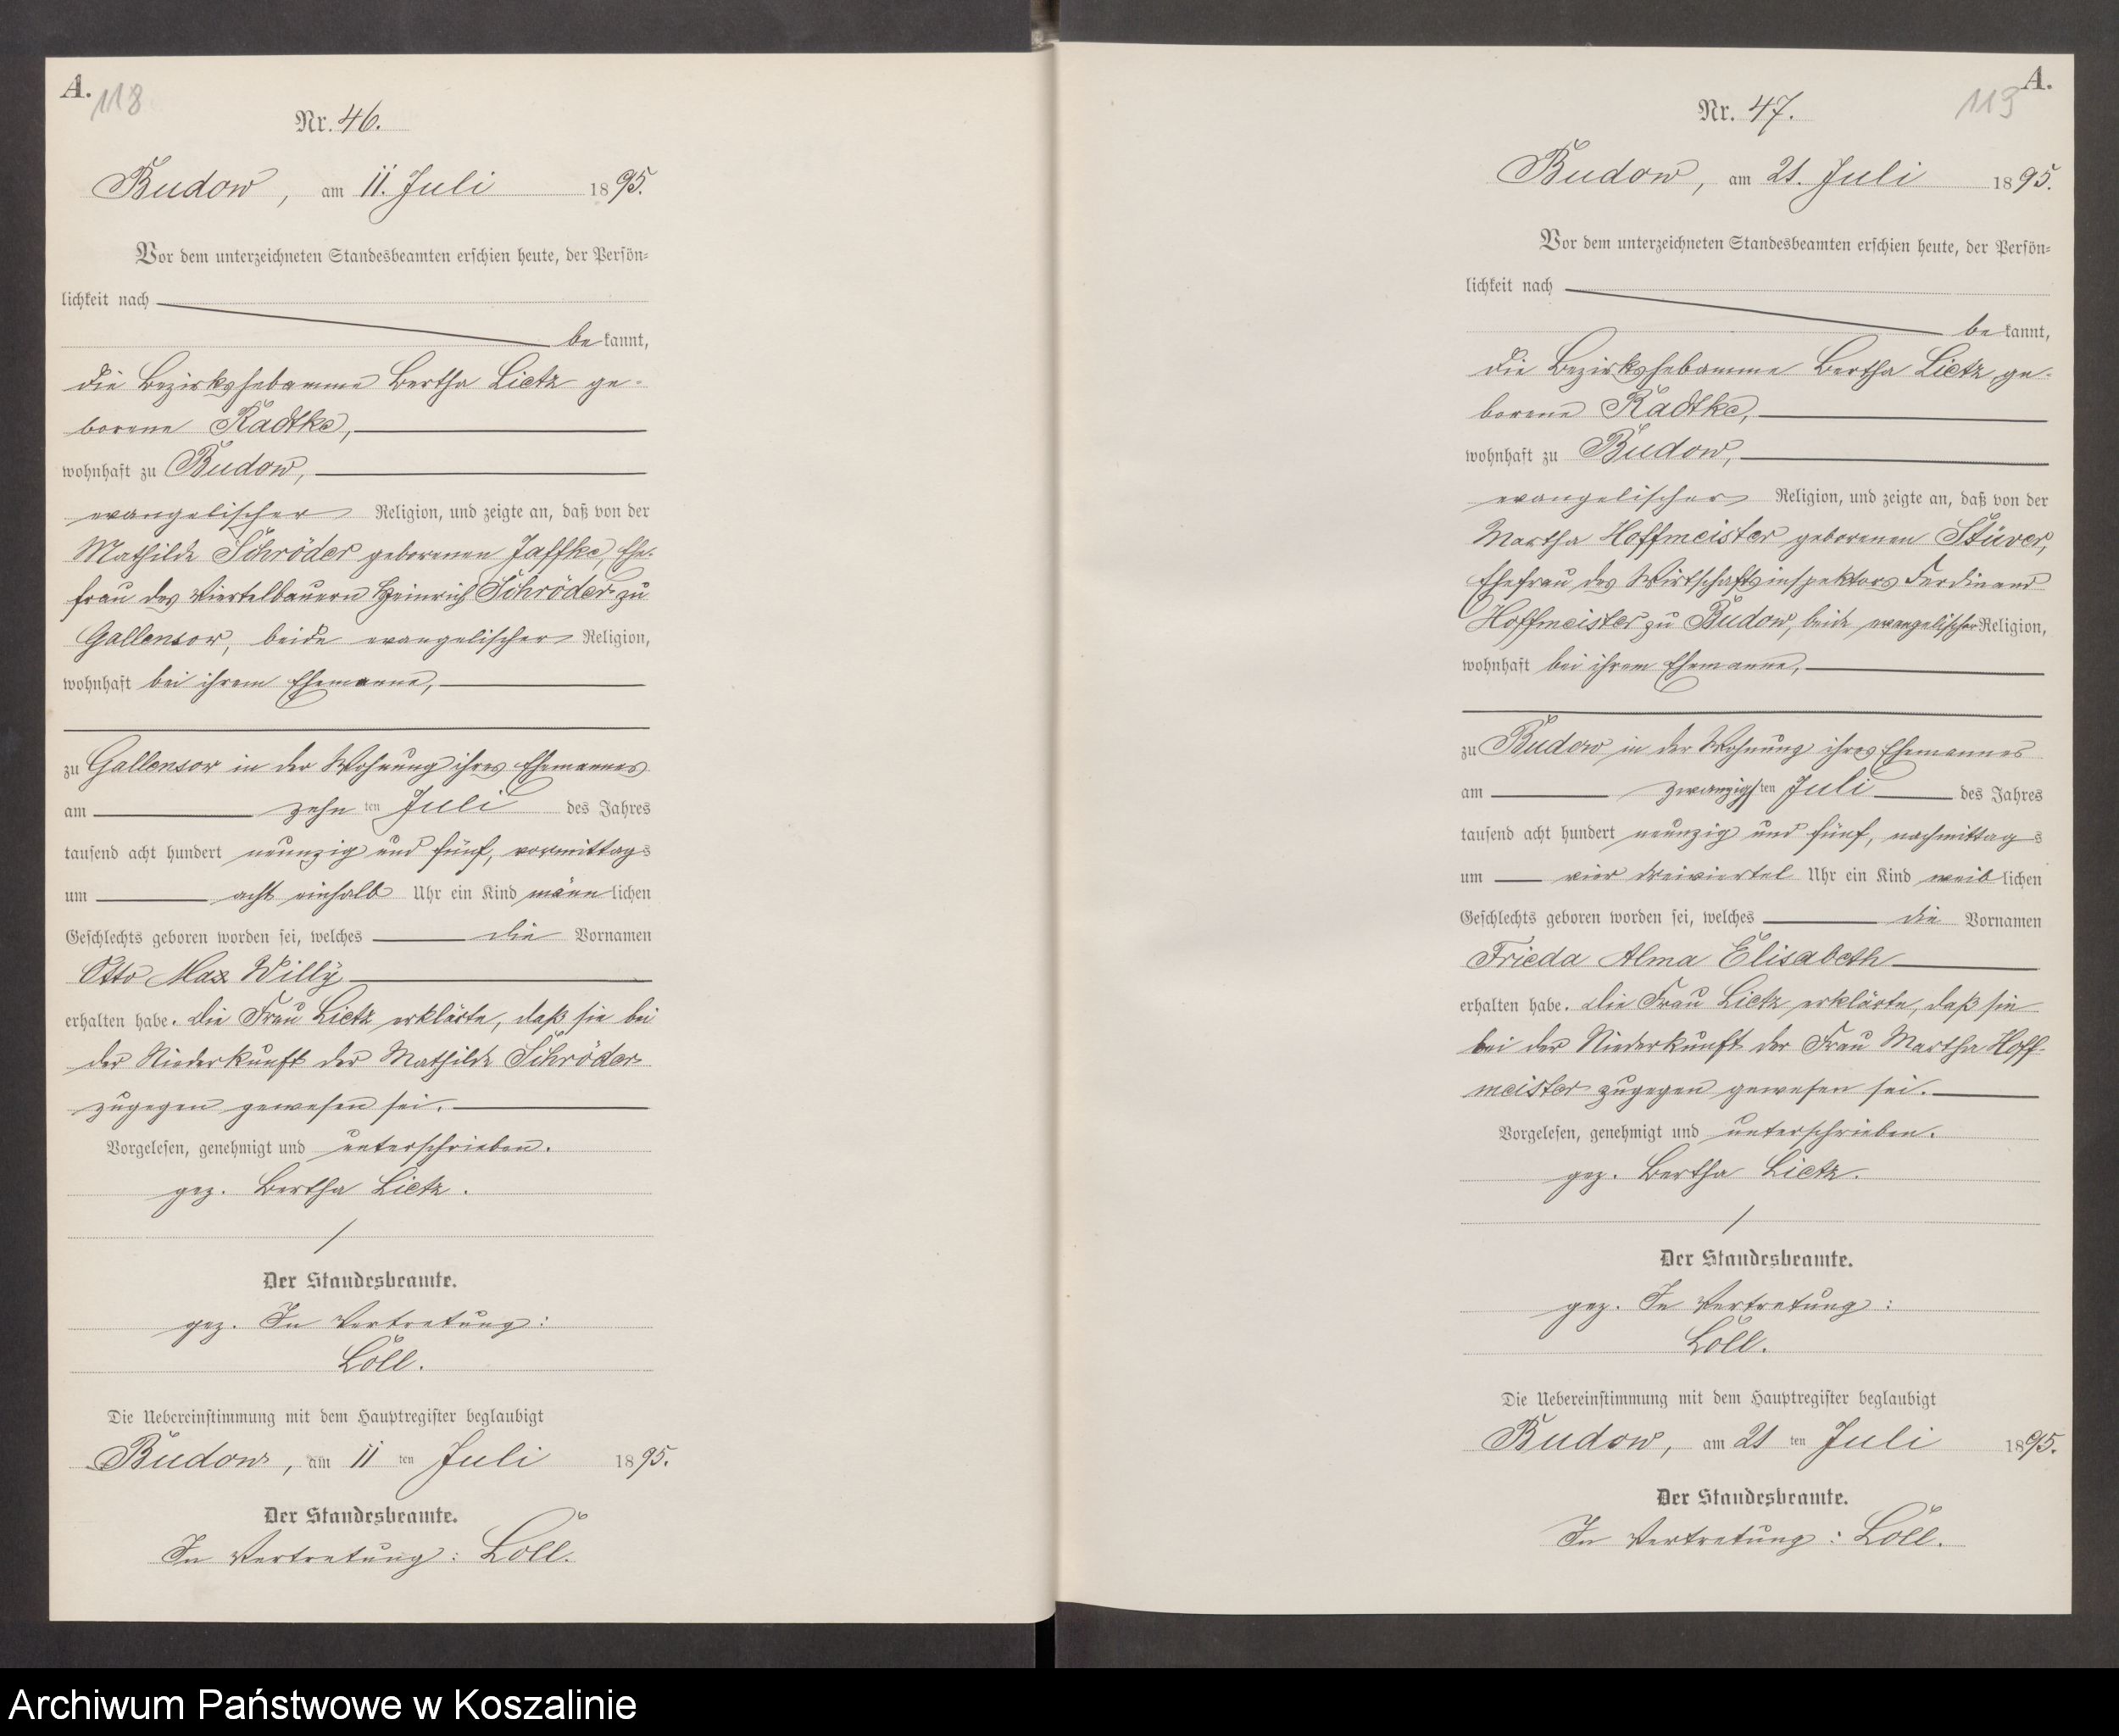 A.
118
Nr. 46.
Budow, am 11. Juli 1895.
Vor dem unterzeichneten Standesbeamten erschien heute, der Persön-
lichkeit nach
bekannt,
die Bezirkshebamme Bertha Lietz ge-
borene Radtke,
wohnhaft zu Budow,
evangelischer Religion, und zeigte an, daß von der
Mathilde Schröder geborenen Jaffke, Ehe-
frau des Viertelbauern Heinrich Schröder zu
Gallensow, beide evangelischer Religion,
wohnhaft bei ihrem Ehemanne,
zu Gallensow in der Wohnung ihres Ehemannes
am zehnten Juli des Jahres
tausend acht hundert neunzig und fünf, vormittags
um acht einhalb Uhr ein Kind männlichen
Geschlechts geboren worden sei, welches die Vornamen
Otto Max Willy
erhalten habe. Die Frau Lietz erklärte, daß sie bei
der Niederkunft der Mathilde Schröder
zugegen gewesen sei.
Vorgelesen, genehmigt und unterschrieben.
gez. Bertha Lietz.
Der Standesbeamte.
gez. In Vertretung:
Löll.
Die Uebereinstimmung mit dem Hauptregister beglaubigt
Budow, am 11ten Juli 1895.
Der Standesbeamte.
In Vertretung: Löll.
A.
119
Nr. 47.
Budow, am 21. Juli 1895.
Vor dem unterzeichneten Standesbeamten erschien heute, der Persön-
lichkeit nach
bekannt,
die Bezirkshebamme Bertha Lietz ge-
borene Radtke,
wohnhaft zu Budow,
evangelischer Religion, und zeigte an, daß von der
Martha Hoffmeister geborenen Stüwer,
Ehefrau des Wirtschaftsinspektors Ferdinand
Hoffmeister zu Budow, beide evangelischer Religion,
wohnhaft bei ihrem Ehemanne,
zu Budow in der Wohnung ihres Ehemannes
am zwanzigsten Juli des Jahres
tausend acht hundert neunzig und fünf, nachmittags
um vier dreiviertel Uhr ein Kind weiblichen
Geschlechts geboren worden sei, welches die Vornamen
Frieda Alma Elisabeth
erhalten habe. Die Frau Lietz erklärte, daß sie
bei der Niederkunft der Frau Martha Hoff-
meister zugegen gewesen sei.
Vorgelesen, genehmigt und unterschrieben.
gez. Bertha Lietz.
Der Standesbeamte.
gez. In Vertretung:
Löll.
Die Uebereinstimmung mit dem Hauptregister beglaubigt
Budow, am 21ten Juli 1895.
Der Standesbeamte.
In Vertretung: Löll.
Archiwum Państwowe w Koszalinie